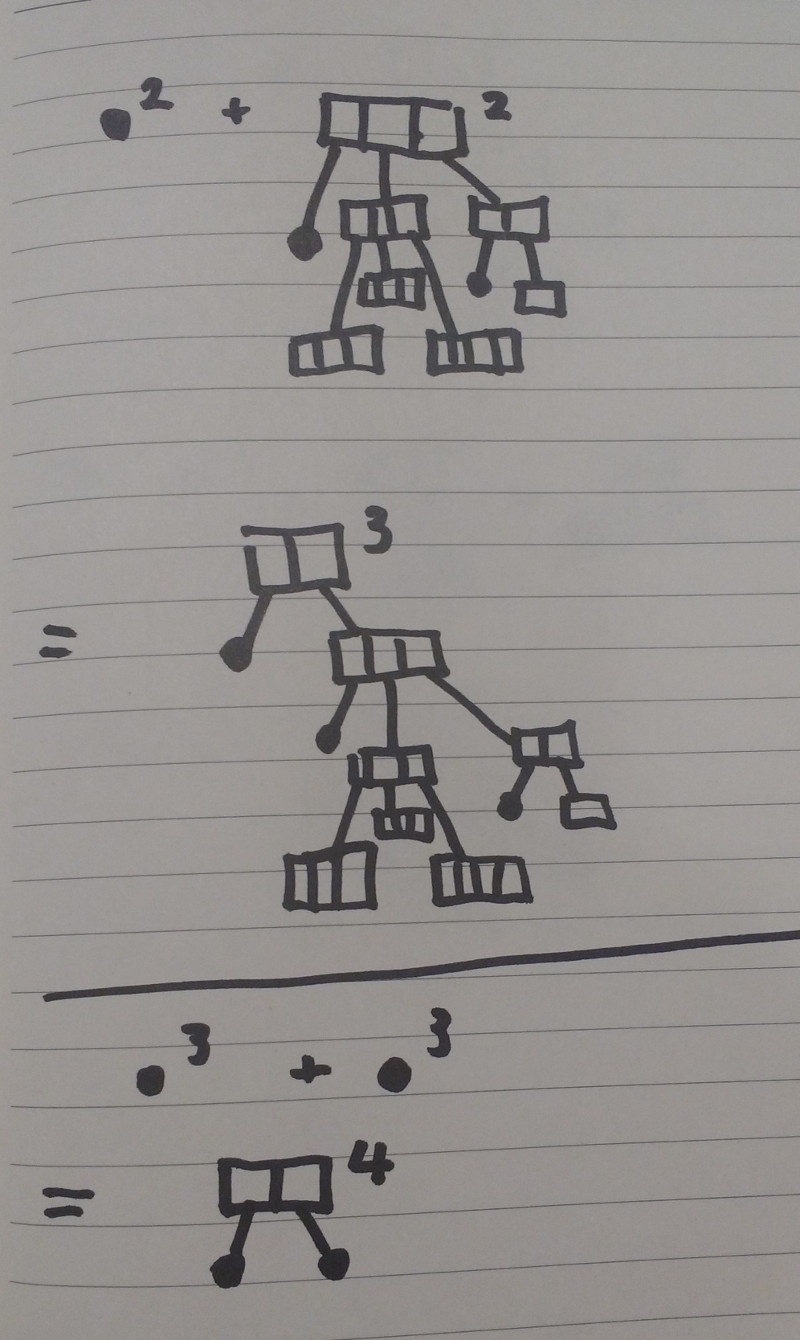 2 + 2
= 3
3 + 3
= 4